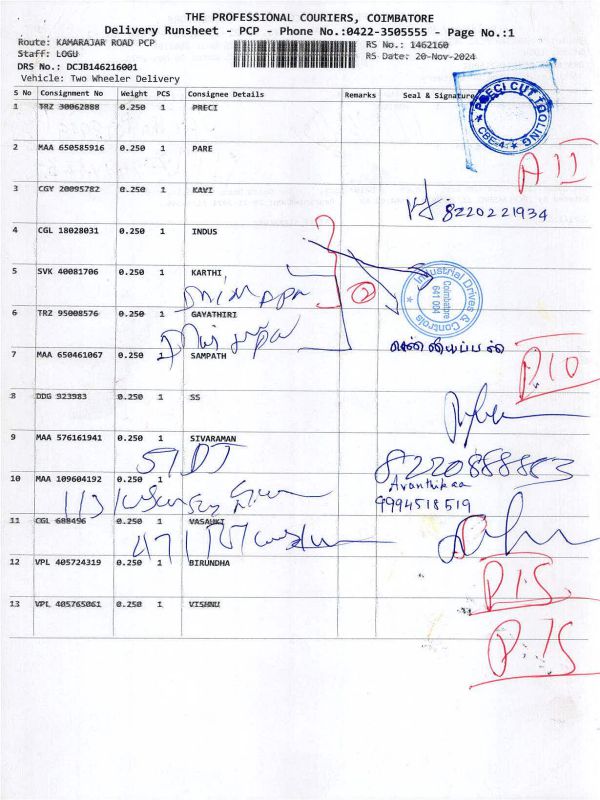 THE PROFESSIONAL COURIERS, COIMBATORE
Delivery Runsheet - PCP - Phone No.:0422-3505555 - Page No.:1
Route: KAMARAJAR ROAD PCP RS No.: 1462160
Staff: LOGU RS Date: 20-Nov-2024
DRS No.: DCJB146216001
Vehicle: Two Wheeler Delivery
S No Consignment No Weight PCS Consignee Details Remarks Seal & Signature
1 TRZ 30062888 0.250 1 PRECI
PRECI CUT TOOLING
CBE-4.
2 MAA 650585916 0.250 1 PARE
A 11
3 CGY 20095782 0.250 1 KAVI
8220221934
4 CGL 18028031 0.250 1 INDUS
5 SVK 40081706 0.250 1 KARTHI
Industrial Drives & Controls
Coimbatore
641 004
2
6 TRZ 95008576 0.250 1 GAYATHIRI
7 MAA 650461067 0.250 1 SAMPATH
P10
8 DDG 923983 0.250 1 SS
9 MAA 576161941 0.250 1 SIVARAMAN
8220888883
10 MAA 109604192 0.250 1
Avanthikaa
9994518519
11 CGL 688496 0.250 1 VASUKI
12 VPL 405724319 0.250 1 BIRUNDHA
P15
13 VPL 405765061 0.250 1 VISHNU
P.75